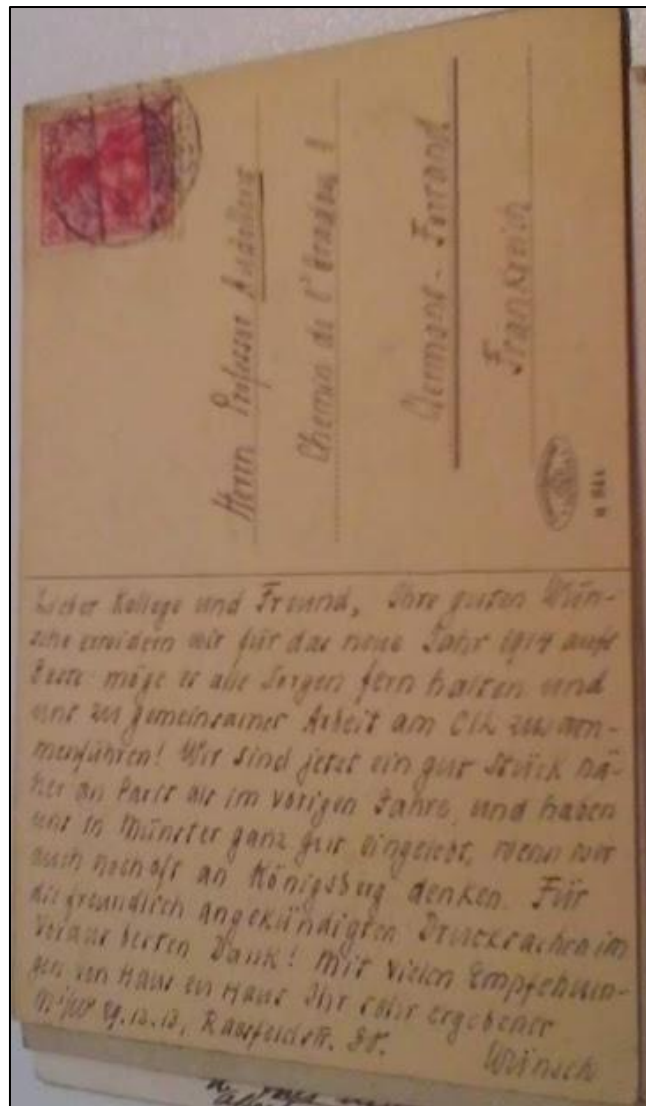 Herrn Professor Audollent
Chemin de l'Oradou 1
Clermont-Ferrand
Frankreich
Lieber Kollege und Freund, Ihre guten Wün-
sche erwidern wir für das neue Jahr 1914 aufs
Beste: möge es alle Sorgen fern halten und
uns zu gemeinsamer Arbeit am CIL zusam-
menführen! Wir sind jetzt ein gut Stück nä-
her an Paris als im vorigen Jahre, und haben
uns in Münster ganz gut eingelebt, wenn wir
auch noch oft an Königsberg denken. Für
die freundlich angekündigten Drucksachen im
Voraus besten Dank! Mit vielen Empfehlun-
gen von Haus zu Haus Ihr sehr ergebener
29.12.13, Raesfeldstr. Wünsch